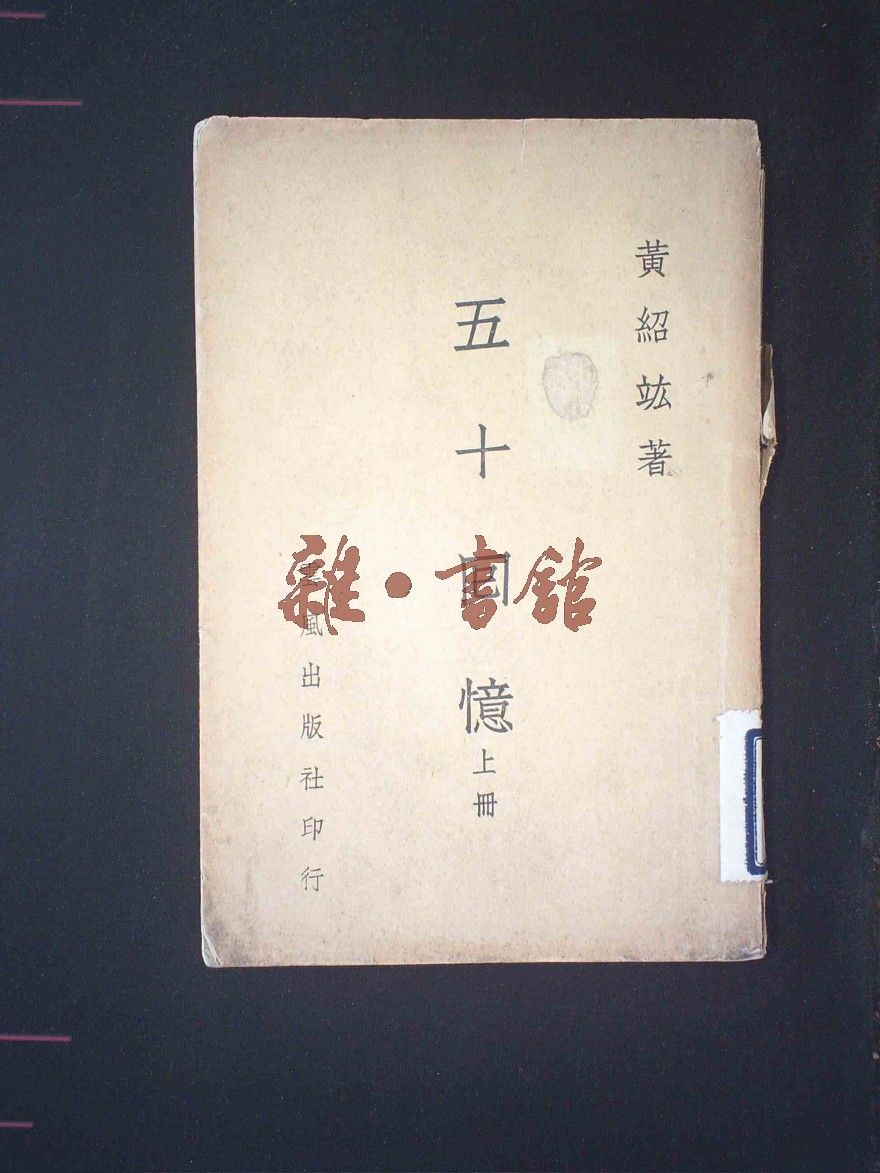 黃紹竑著
五十回憶
上冊
風出版社印行
雜·書館